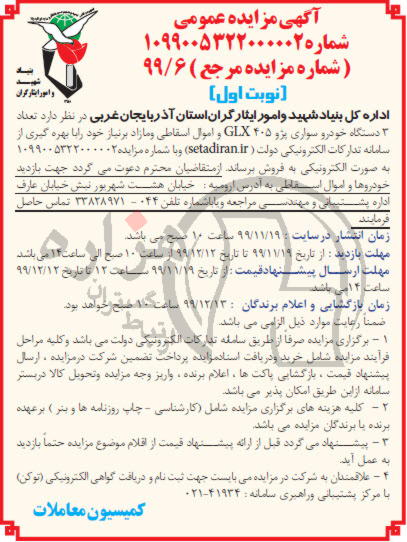 آگهی مزایده عمومی
شماره ۱۰۹۹۰۰۵۳۲۲۰۰۰۰۰۲
(شماره مزایده مرجع ۹۹/۶)
(نوبت اول)
بنیاد
شهید
و امور ایثارگران
اداره کل بنیاد شهید وامور ایثار گران استان آذربایجان غربی در نظر دارد تعداد
۳ دستگاه خودرو سواری پژو ۴۰۵ GLX و اموال اسقاطی ومازاد برنیاز خود رابا بهره گیری از
سامانه تدارکات الکترونیکی دولت (setadiran.ir) وبا شماره مزایده۱۰۹۹۰۰۵۳۲۲۰۰۰۰۰۲
به صورت الکترونیکی به فروش برساند. ازمتقاضیان محترم دعوت می گردد جهت بازدید
خودروها و اموال اسقاطی به آدرس ارومیه : خیابان هشت شهریور نبش خیابان عارف
اداره پشتیبانی و مهندسی مراجعه وباشماره تلفن ۰۴۴ - ۳۳۸۲۸۹۷۱ تماس حاصل
فرمایند
زمان انتشار درسایت : ۹۹/۱۱/۱۹ ساعت ۱۰ صبح می باشد.
مهلت بازدید : از تاریخ ۹۹/۱۱/۱۹ تا تاریخ ۹۹/۱۲/۱۲ از ساعت ۱۰ صبح الی ساعت۱۴می باشد
مهلت ارسال پیشنهادقیمت : از تاریخ ۹۹/۱۱/۱۹ ساعت ۱۲ تا تاریخ ۹۹/۱۲/۱۲
ساعت ۱۴می باشد.
زمان بازگشایی و اعلام برندگان : ۹۹/۱۲/۱۳ ساعت ۱۰ صبح خواهد بود.
ضمناً رعایت موارد ذیل الزامی می باشد.
۱ – برگزاری مزایده صرفاً از طریق سامانه تدارکات الکترونیکی دولت می باشد وکلیه مراحل
فرآیند مزایده شامل خرید ودریافت اسنادمزایده پرداخت تضمین شرکت درمزایده ، ارسال
پیشنهاد قیمت ، بازگشایی پاکت ها ، اعلام برنده ، واریز وجه مزایده وتحویل کالا دربستر
سامانه ازاین طریق امکان پذیر می باشد.
۲ – کلیه هزینه های برگزاری مزایده شامل (کارشناسی - چاپ روزنامه ها و بنر ) برعهده
برنده یا برندگان مزایده می باشد.
۳ – پیشنهاد می گردد قبل از ارائه پیشنهاد قیمت از اقلام موضوع مزایده حتماً بازدید
به عمل آید.
۴ – علاقمندان به شرکت در مزایده می بایست جهت ثبت نام و دریافت گواهی الکترونیکی (توکن)
با مرکز پشتیبانی وراهبری سامانه : ۴۱۹۳۴-۰۲۱
کمیسیون معاملات